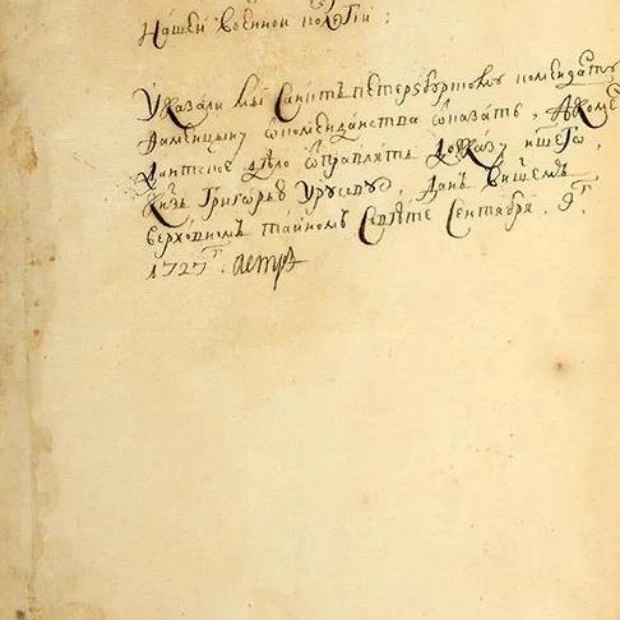 Нашей военной колегiи ;
Указали мы Санктъ петерзбургскому коменданту
Фаменцыну ѿ комендантства ѿказать , а коме
дантское дѣло ѿправлять до указу ншего ,
Кнзь Григорью Урусову , данъ в вышемъ
верховномъ тайномъ Совѣте Сентября . 9г .
1727г : петръ